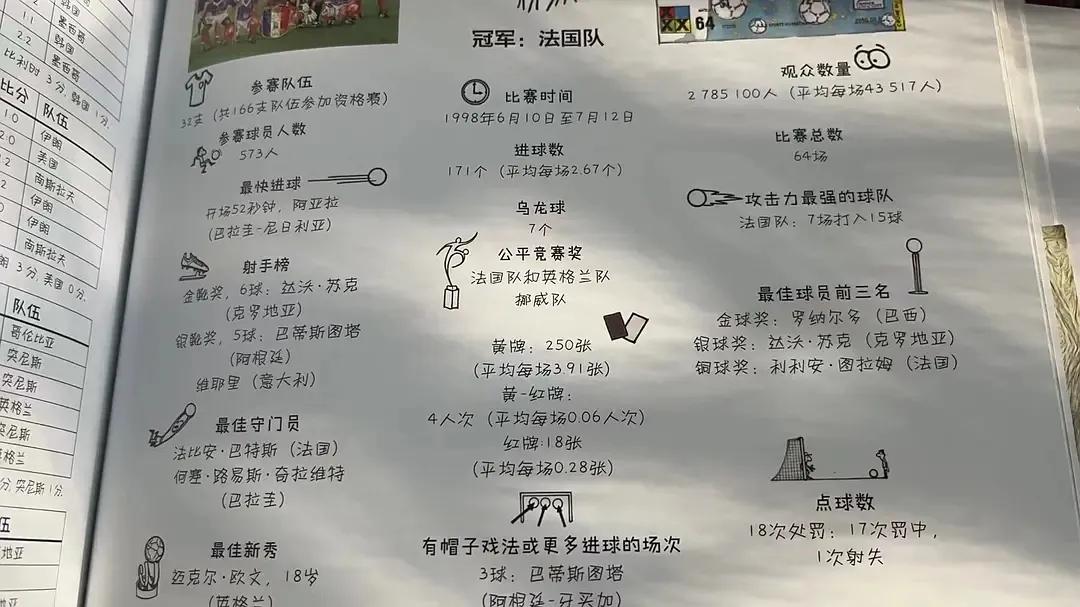 韩国
1.1
墨西哥
2.2
韩国
墨西哥
比利时 3分, 韩国 1分.
比分
队伍
1:0
伊朗
2:0
美国
南斯拉夫
伊朗
伊朗
南斯拉夫
3分, 美国 0分.
队伍
哥伦比亚
突尼斯
突尼斯
英格兰
突尼斯
英格兰
突尼斯 1分.
冠军：法国队
XX 64
参赛队伍
32支（共166支队伍参加资格赛）
参赛球员人数
573人
最快进球
开场52秒钟，阿亚拉
（巴拉圭-尼日利亚）
射手榜
金靴奖，6球：达沃·苏克
（克罗地亚）
银靴奖，5球：巴蒂斯图塔
（阿根廷）
维耶里（意大利）
最佳守门员
法比安·巴特斯（法国）
何塞·路易斯·奇拉维特
（巴拉圭）
最佳新秀
迈克尔·欧文，18岁
（英格兰）
比赛时间
1998年6月10日至7月12日
进球数
171个（平均每场2.67个）
乌龙球
7个
公平竞赛奖
法国队和英格兰队
挪威队
黄牌：250张
（平均每场3.91张）
黄-红牌：
4人次（平均每场0.06人次）
红牌:18张
（平均每场0.28张）
有帽子戏法或更多进球的场次
3球：巴蒂斯图塔
（阿根廷-牙买加）
观众数量
2 785 100人（平均每场43 517人）
比赛总数
64场
攻击力最强的球队
法国队：7场打入15球
最佳球员前三名
金球奖：罗纳尔多（巴西）
银球奖：达沃·苏克（克罗地亚）
铜球奖：利利安·图拉姆（法国）
点球数
18次处罚：17次罚中，
1次射失